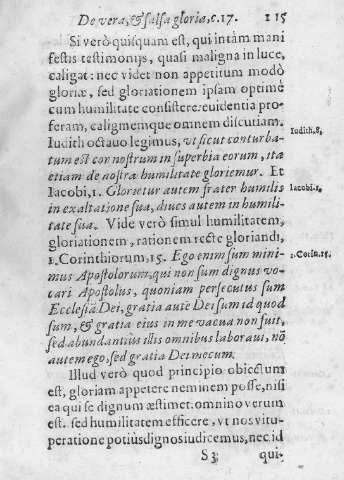 De vera, & falsa gloria, c. 17. 115
Si verò quisquam est, qui intàm mani
festis testimonijs, quasi maligna in luce,
caligat: nec videt non appetitum modò
gloriæ, sed gloriationem ipsam optimè
cum humilitate consistere: euidentia pro-
feram, caliginemque omnem discutiam.
Iudith octauo legimus, vt sicut conturba- Iudith. 8.
tum est cor nostrum in superbia eorum, ita
etiam de nostra humilitate gloriemur. Et
Iacobi, 1. Glorietur autem frater humilis Iacobi. 1.
in exaltatione sua, diues autem in humili-
tate sua. Vide verò simul humilitatem,
gloriationem, rationem recte gloriandi,
1. Corinthiorum, 15. Ego enim sum mini- 1. Corin. 15.
mus Apostolorum, qui non sum dignus vo-
cari Apostolus, quoniam persecutus sum
Ecclesiã Dei, gratia autẽ Dei sum id quod
sum, & gratia eius in me vacua non fuit,
sed abundantiùs illis omnibus laboraui, nõ
autem ego, sed gratia Dei mecum.
Illud verò quod principio obiectum
est, gloriam appetere neminem posse, nisi
ea qui se dignum æstimet. omnino verum
est. sed humilitatem efficere, vt nos vitu-
peratione potiùs dignos iudicemus, nec id
S 3 qui-